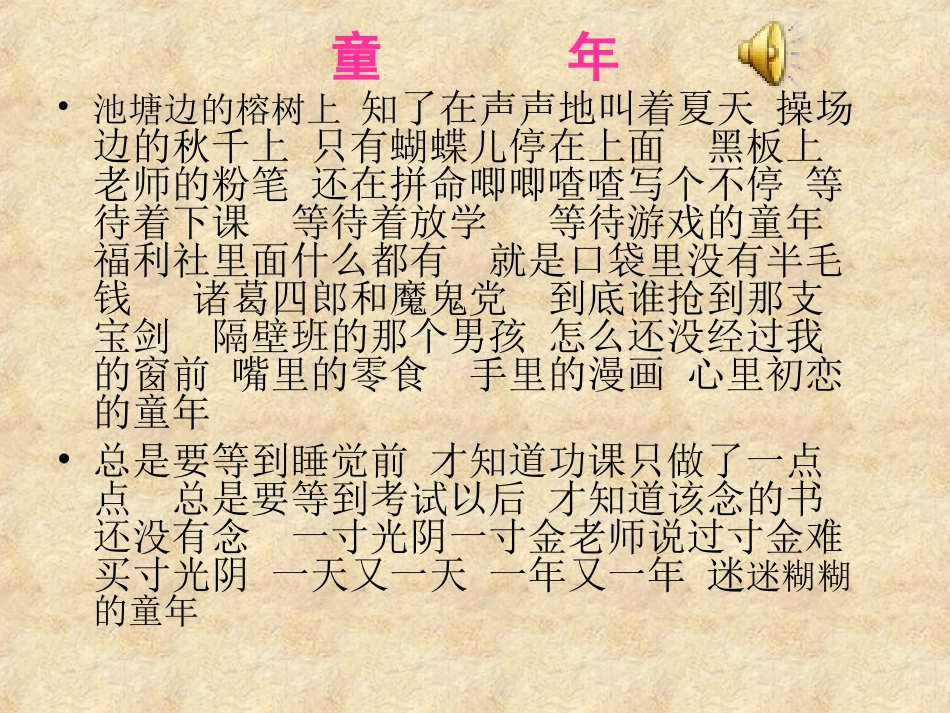 童 年
• 池塘边的榕树上 知了在声声地叫着夏天 操场
边的秋千上 只有蝴蝶儿停在上面 黑板上
老师的粉笔 还在拼命唧唧喳喳写个不停 等
待着下课 等待着放学 等待游戏的童年
福利社里面什么都有 就是口袋里没有半毛
钱 诸葛四郎和魔鬼党 到底谁抢到那支
宝剑 隔壁班的那个男孩 怎么还没经过我
的窗前 嘴里的零食 手里的漫画 心里初恋
的童年
• 总是要等到睡觉前 才知道功课只做了一点
点 总是要等到考试以后 才知道该念的书
还没有念 一寸光阴一寸金老师说过寸金难
买寸光阴 一天又一天 一年又一年 迷迷糊糊
的童年